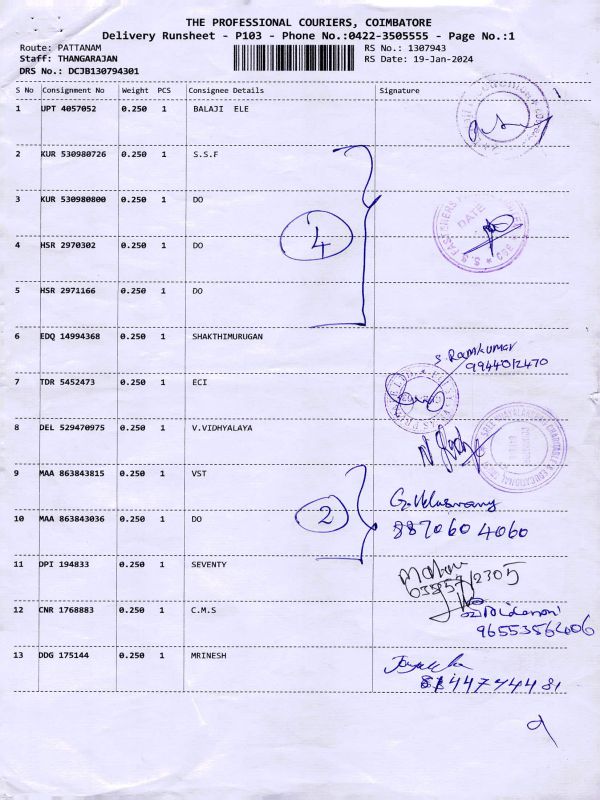 THE PROFESSIONAL COURIERS, COIMBATORE
Delivery Runsheet - P103 - Phone No.:0422-3505555 - Page No.:1
Route: PATTANAM RS No.: 1307943
Staff: THANGARAJAN RS Date: 19-Jan-2024
DRS No.: DCJB130794301
S No Consignment No Weight PCS Consignee Details Signature
1 UPT 4057052 0.250 1 BALAJI ELE
2 KUR 530980726 0.250 1 S.S.F
3 KUR 530980800 0.250 1 DO
DATE
4 HSR 2970302 0.250 1 DO
4
5 HSR 2971166 0.250 1 DO
6 EDQ 14994368 0.250 1 SHAKTHIMURUGAN
S. Ramkumar
9944012470
7 TDR 5452473 0.250 1 ECI
8 DEL 529470975 0.250 1 V.VIDHYALAYA
9 MAA 863843815 0.250 1 VST
2
10 MAA 863843036 0.250 1 DO
8870604060
11 DPI 194833 0.250 1 SEVENTY
12 CNR 1768883 0.250 1 C.M.S
13 DDG 175144 0.250 1 MRINESH